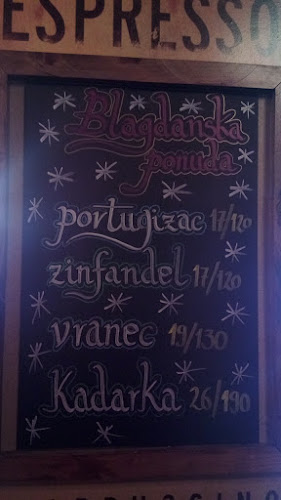 ESPRESSO
Blagdanska
ponuda
portugizac 17/120
zinfandel 17/120
vranec 19/130
Kadarka 26/190